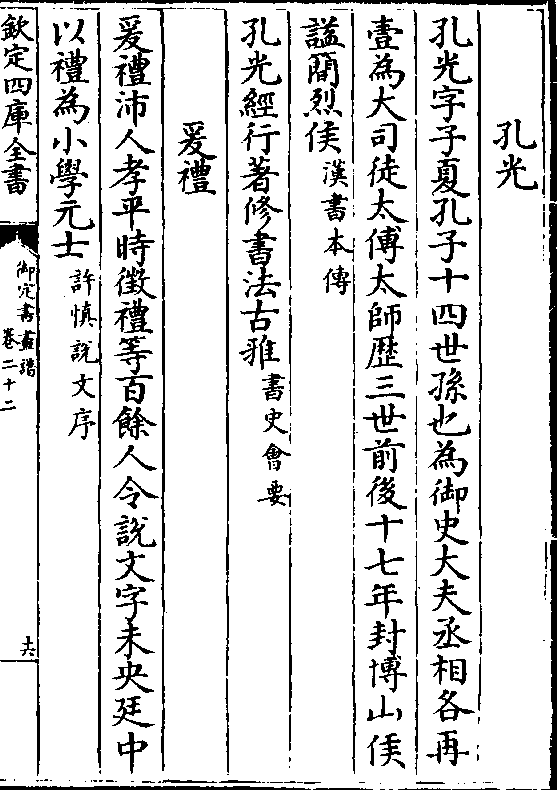 孔光
孔光字子夏孔子十四世孫也為御史大夫丞相各再
壹為大司徒太傅太師歴三世前後十七年封博山侯
謚簡烈侯漢書本傳
孔光經行著修書法古雅書史會要
爰禮
爰禮沛人孝平時徴禮等百餘人令説文字未央廷中
以禮為小學元士許慎説文序
欽定四庫全書
御定書畫譜
卷二十二
六